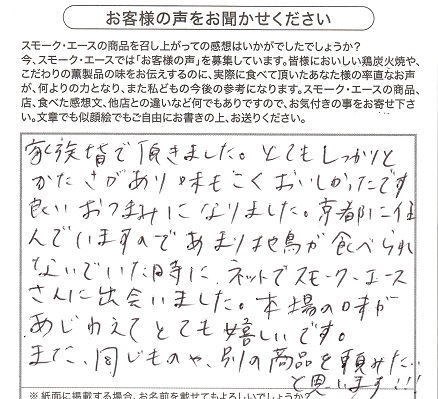 お客様の声をお聞かせください
スモーク・エースの商品を召し上がっての感想はいかがでしたでしょうか?
今、スモーク・エースでは「お客様の声」を募集しています。皆様においしい鶏炭火焼や、
こだわりの薫製品の味をお伝えするのに、実際に食べて頂いたあなた様の率直なお声
が、何よりの力となり、また私どもの今後の参考になります。スモーク・エースの商品、
店、食べた感想文、他店との違いなど何でもありですので、お気付きの事をお寄せ下さ
い。文章でも似顔絵でもご自由にお書きの上、お送りください。
家族皆で頂きました。とてもしっかりと
かたさがあり味もこくおいしかったです
良いおつまみになりました。京都に住
んでいますのであまり地鳥が食べられ
ないでいた時に、ネットでスモーク・エース
さんに出会いました。本場の味が
あじわえてとても嬉しいです。
また、同じものや、別の商品を頼みた
と思います!!!
※紙面に掲載する場合、お名前を載せてもよろしいでしょうか?